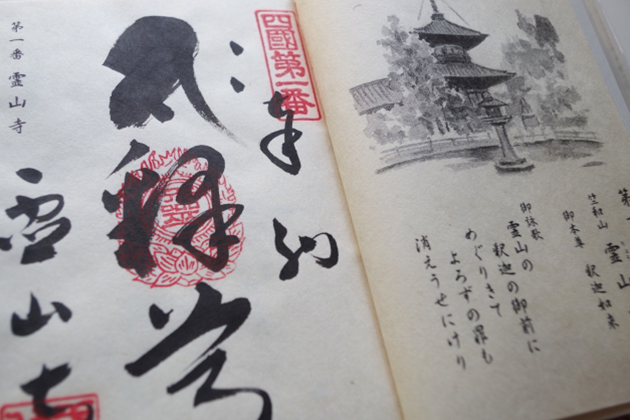 霊山
竺和山
御本尊　釈迦如来
御詠歌
霊山の
釈迦の御前に
めぐりきて
よろずの罪も
消えうせにけり
四國第一番
奉納
釋
霊山寺
第一番　霊山寺